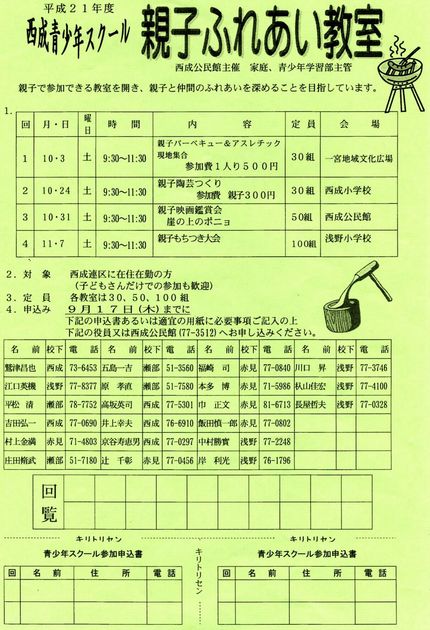 平成２１年度
西成青少年スクール 親子ふれあい教室
西成公民館主催　家庭、青少年学習部主管
親子で参加できる教室を開き、親子と仲間のふれあいを深めることを目指しています。
1.
回 月・日 曜日 時間 内容 定員 会場
1 10・3 土 9:30～11:30 親子バーベキュー＆アスレチック 現地集合 参加費１人り５００円 30組 一宮地域文化広場
2 10・24 土 9:30～11:30 親子陶芸つくり 参加費 親子３００円 30組 西成小学校
3 10・31 土 9:30～11:30 親子映画鑑賞会 崖の上のポニョ 50組 西成公民館
4 11・7 土 9:30～11:30 親子もちつき大会 100組 浅野小学校
２．対象 西成連区に在住在勤の方
（子どもさんだけでの参加も歓迎）
３．定員 各教室は３０、５０、１００組
４．申込み ９月１７日（木）までに
下記の申込書あるいは適宜の用紙に必要事項ご記入の上
下記の役員又は西成公民館(77-3512)へお申し込みください。
名前 校下 電話 名前 校下 電話 名前 校下 電話 名前 校下 電話
鷲津昌也 西成 73-6453 五島一吉 瀬部 51-3560 福崎司 赤見 77-0840 川口昇 浅野 77-3746
江口英機 浅野 77-8377 原孝直 瀬部 51-7580 本多博 赤見 71-5986 秋山佳宏 浅野 77-4100
平松清 瀬部 78-7752 高坂英司 西成 77-5301 巾正文 赤見 81-6713 長屋哲夫 浅野 77-0328
吉田弘一 西成 77-0690 井上幸夫 西成 76-6910 飯田慎一郎 赤見 77-0802
村上金満 赤見 71-4803 京谷寿恵男 西成 77-0297 中村勝實 浅野 77-2248
庄田脩武 瀬部 51-7180 辻千彰 赤見 77-0456 岸利光 浅野 76-1796
回覧
キリトリセン キリトリセン
青少年スクール参加申込書 キリトリセン 青少年スクール参加申込書
回 名前 住所 電話 回 名前 住所 電話